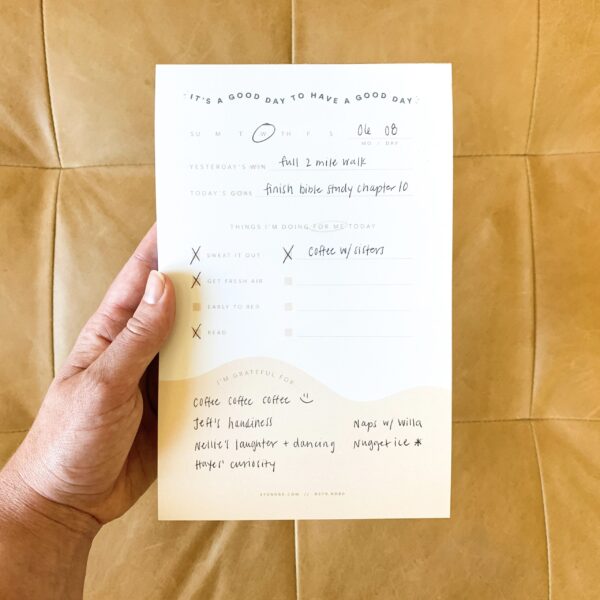 IT'S A GOOD DAY TO HAVE A GOOD DAY
SU M T W TH F S 06 08
MO / DAY
YESTERDAY'S WIN full 2 mile walk
TODAY'S GOAL finish bible study chapter 10
THINGS I'M DOING FOR ME TODAY
X SWEAT IT OUT X coffee w/ sisters
X GET FRESH AIR
EARLY TO BED
X READ
I'M GRATEFUL FOR
Coffee coffee coffee
Jeff's handiness Naps w/ Willa
Nellie's laughter + dancing Nugget ice *
Hayes' curiosity